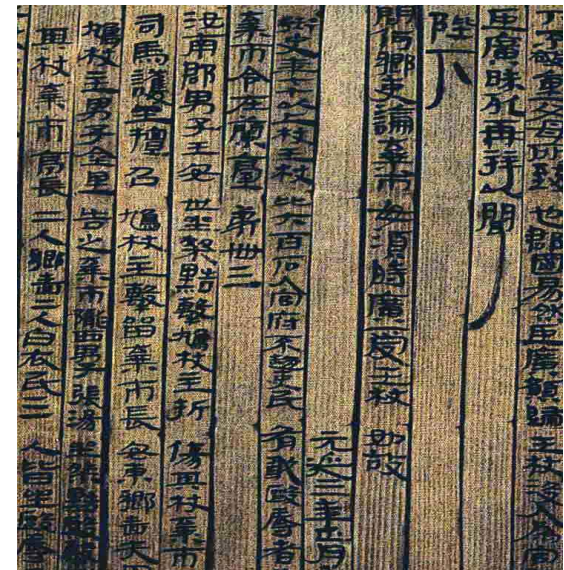 下不敬重父母所致也郡國易然臣廣願歸王杖没入為官
臣廣昧死再拜以聞
陛下
問何鄉吏論棄市毋須時廣受王杖如故
元延三年正月
年七十以上杖王杖比六百石入官府不趨吏民有敢毆辱者
棄市令在蘭臺第卌三
汝南郡男子王安世坐桀黠擊鳩杖主折傷其杖棄市
司馬護坐擅召鳩杖主擊留棄市長安東鄉嗇夫
鳩杖主男子金里告之棄市隴西男子張湯坐桀黠毆擊
其杖棄市亭長二人鄉嗇二人白衣民三人皆坐毆辱